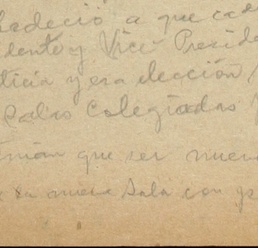 badeció a que cad
dente y Vice Preside
ticia y era elección
Salas Colegiadas
que ser nueve
nueve Sala con